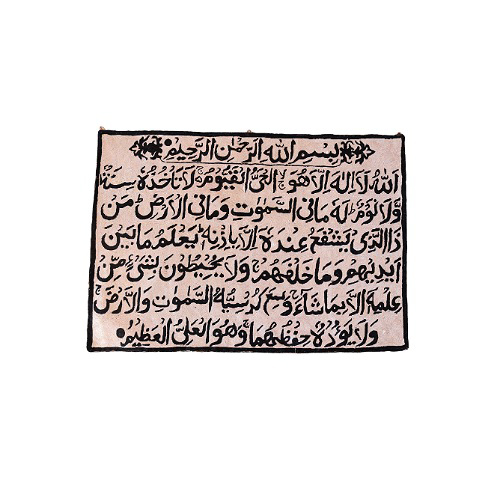 بِسْمِ اللهِ الرَّحْمٰنِ الرَّحِيْمِ
اَللهُ لَا اِلٰهَ اِلَّا هُوَ ۚ اَلْحَیُّ الْقَيُّوْمُ ۚ لَا تَاْخُذُهٗ سِنَةٌ
وَّلَا نَوْمٌ ؕ لَهٗ مَا فِی السَّمٰوٰتِ وَمَا فِی الْاَرْضِ ؕ مَنْ
ذَا الَّذِیْ يَشْفَعُ عِنْدَهٗ اِلَّا بِاِذْنِهٖ ؕ يَعْلَمُ مَا بَيْنَ
اَيْدِيْهِمْ وَمَا خَلْفَهُمْ ۚ وَلَا يُحِيْطُوْنَ بِشَیْءٍ مِّنْ
عِلْمِهٖ اِلَّا بِمَا شَاءَ ۚ وَسِعَ كُرْسِيُّهُ السَّمٰوٰتِ وَالْاَرْضَ ۚ
وَلَا يَؤُدُهٗ حِفْظُهُمَا ۚ وَهُوَ الْعَلِیُّ الْعَظِيْمُ